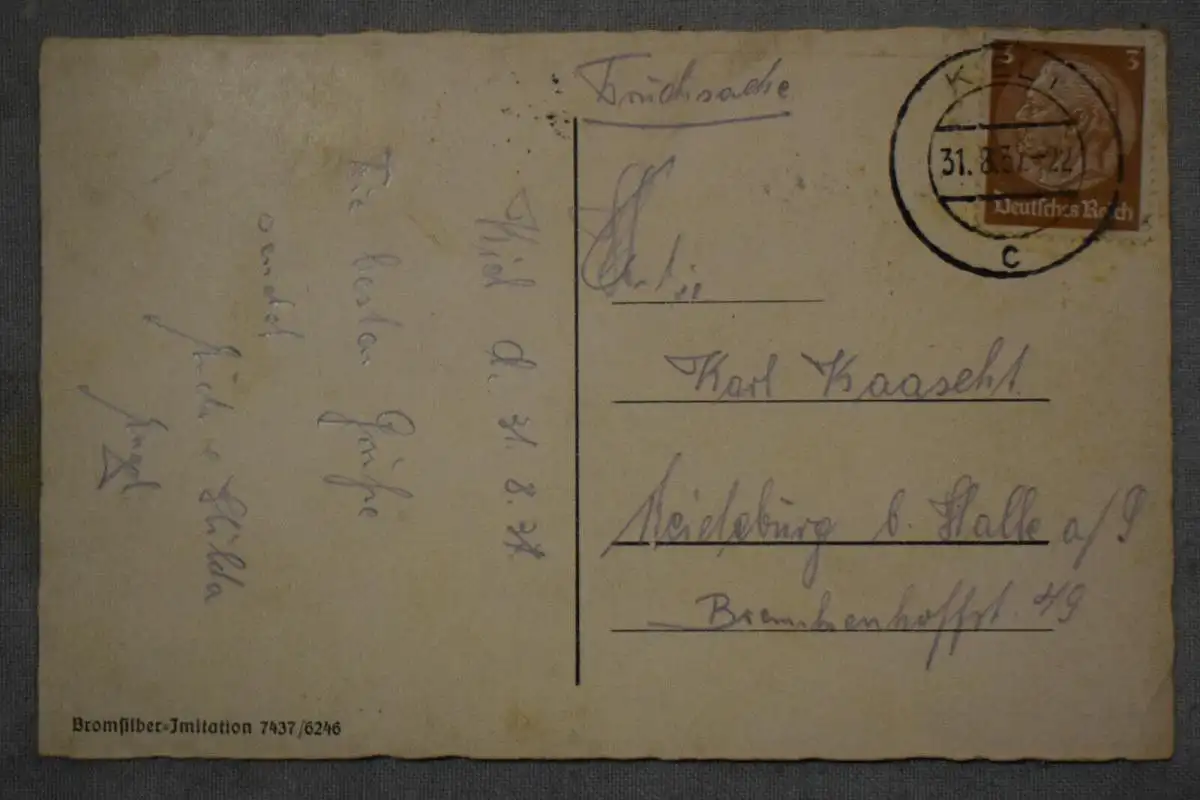 Drucksache
3 3
KIEL 1
31.8.37.-22
Deutsches Reich
c
Karl Kaascht
Reideburg b. Halle a/S
49
Kiel d. 31. 8. 37
Die besten Grüße
sendet
Hilda
Bromsilber-Imitation 7437/6246